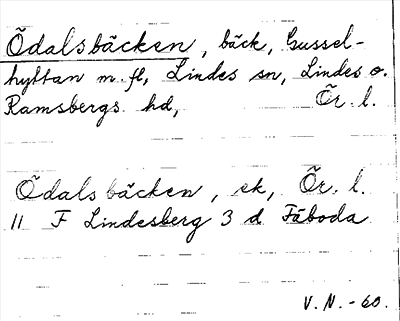 Ödalsbäcken, bäck, Gussel-
hyttan m.fl, Lindes sn, Lindes o.
Ramsbergs hd, Ör. l.
Ödalsbäcken, ek, Ör. l.
11 F Lindesberg 3 d Fäboda
V.N. -60.